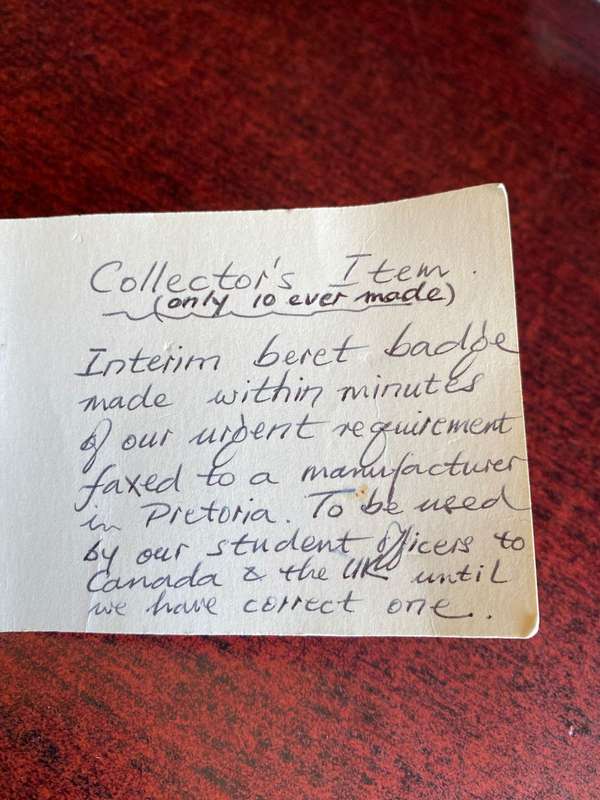 Collector's Item.
(only 10 ever made)
Interim beret badge
made within minutes
of our urgent requirement
faxed to a manufacturer
in Pretoria. To be used
by our student officers to
Canada & the UK until
we have correct one.